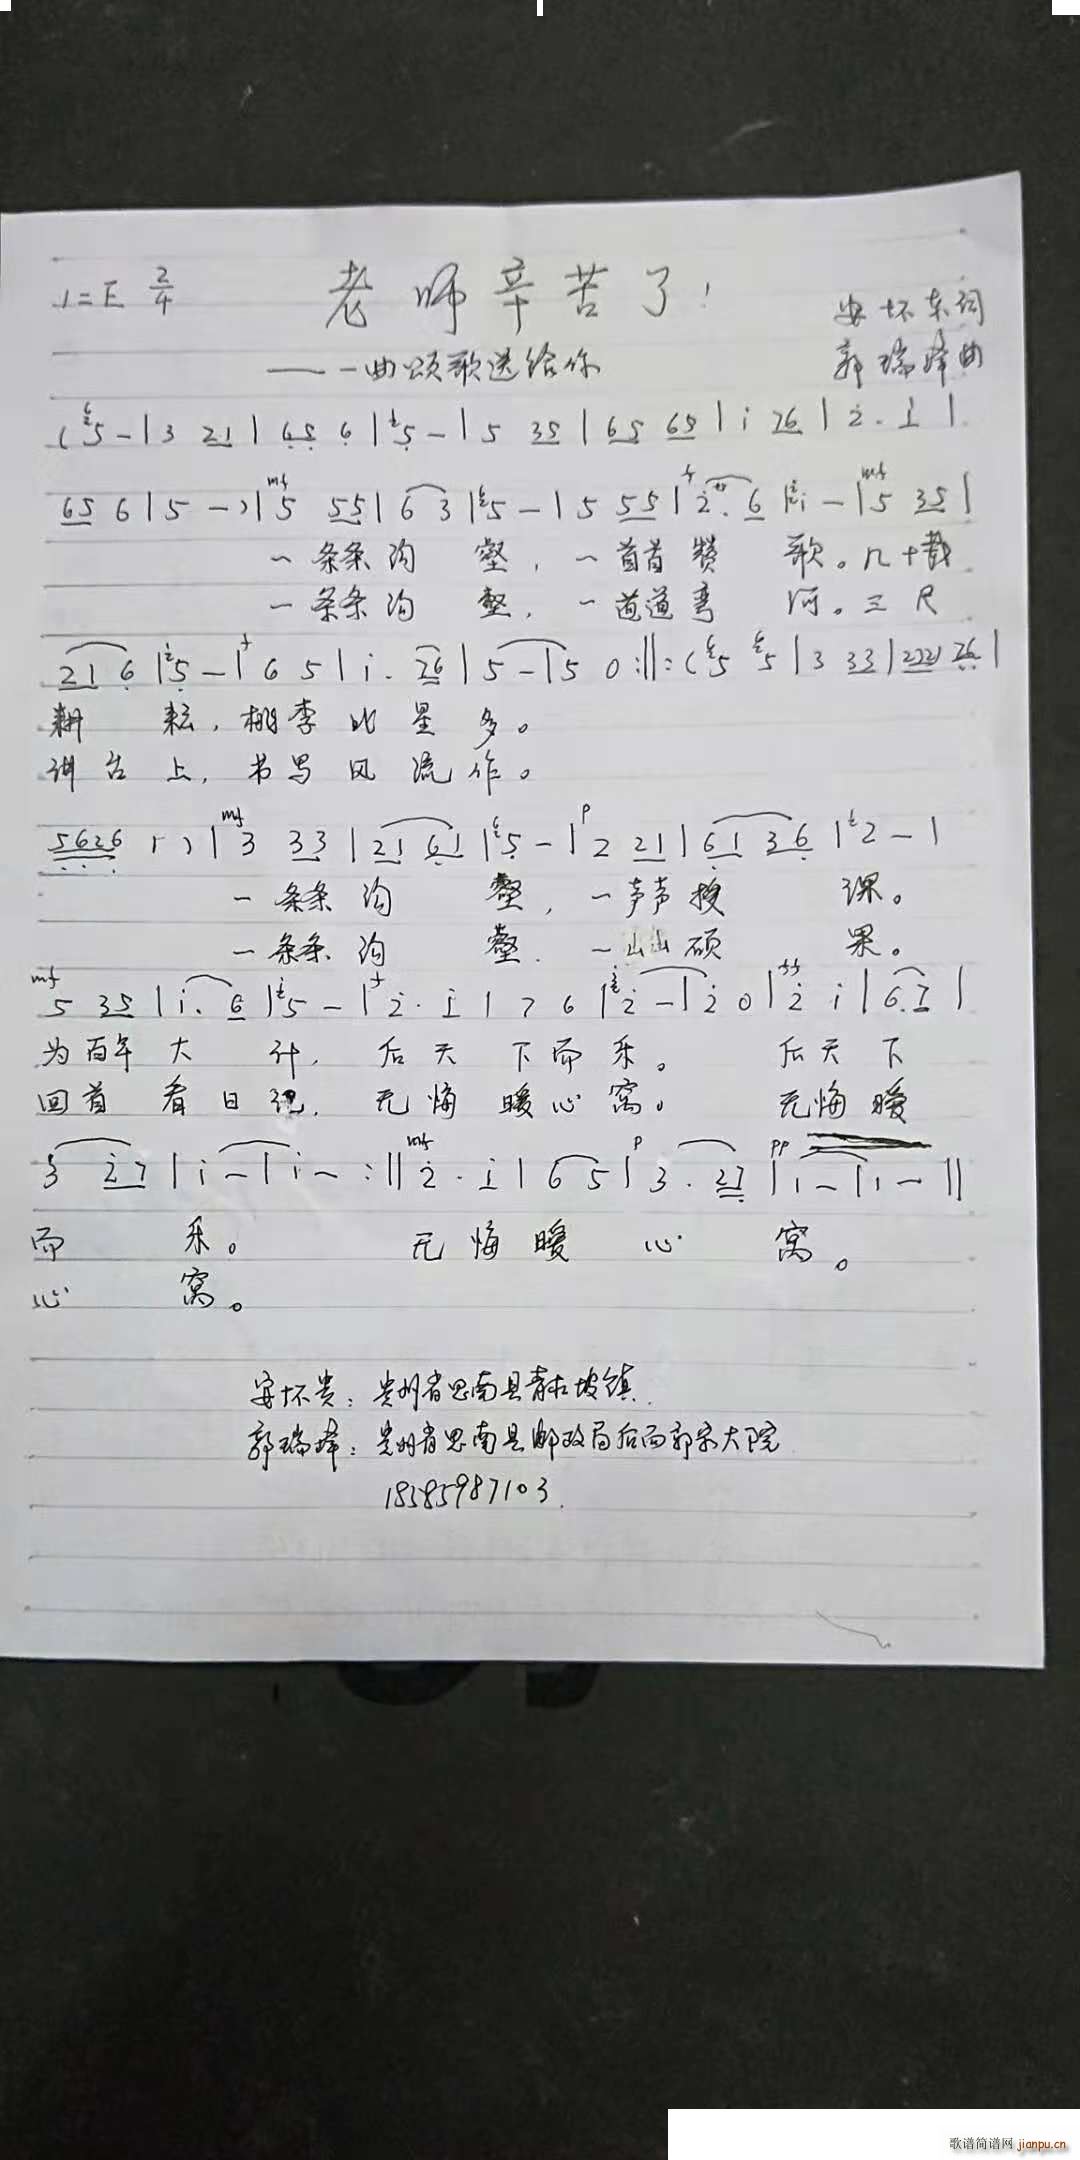 1=E 2/4 老师辛苦了！
安怀东词
——一曲颂歌送给你
郭瑞峰曲
(5 - | 3 21 | 65 6 | 5 - | 5 35 | 65 65 | i 26 | 2. i |
65 6 | 5 -) | mf 5 55 | 6 3 | 5 - | 5 55 | f 2. 6 | i - | mf 5 35 |
一条条沟 壑，一首首赞 歌。几十载
一条条沟 壑，一道道弯 河。三尺
216 | 5 - | f 6 5 | i. 26 | 5 - | 5 0 :||: (5 5 | 3 33 | 2221 26 |
耕 耘，桃李比星多。
讲台上，书写风流作。
5626 1) | mf 3 33 | 21 61 | 5 - | p 2 21 | 61 36 | 2 - |
一条条沟 壑，一声声授 课。
一条条沟 壑. 一出出硕 果。
mf 5 35 | i. 6 | 5 - | f 2. i | 7 6 | 2 - | 2 0 | ff 2 i | 6. 7 |
为百年大 计，后天下而乐。 后天下
回首看日 记，无悔暖心窝。 无悔暖
3 27 | i - | i - :|| mf 2. i | 6 5 | p 3. 27 | pp 1 - | 1 - ||
而 乐。 无悔暖 心 窝。
心 窝。
安怀贵：贵州省思南县青杠坡镇.
郭瑞峰：贵州省思南县邮政局后面郭家大院
18585987103.
歌谱简谱网 jianpu.cn